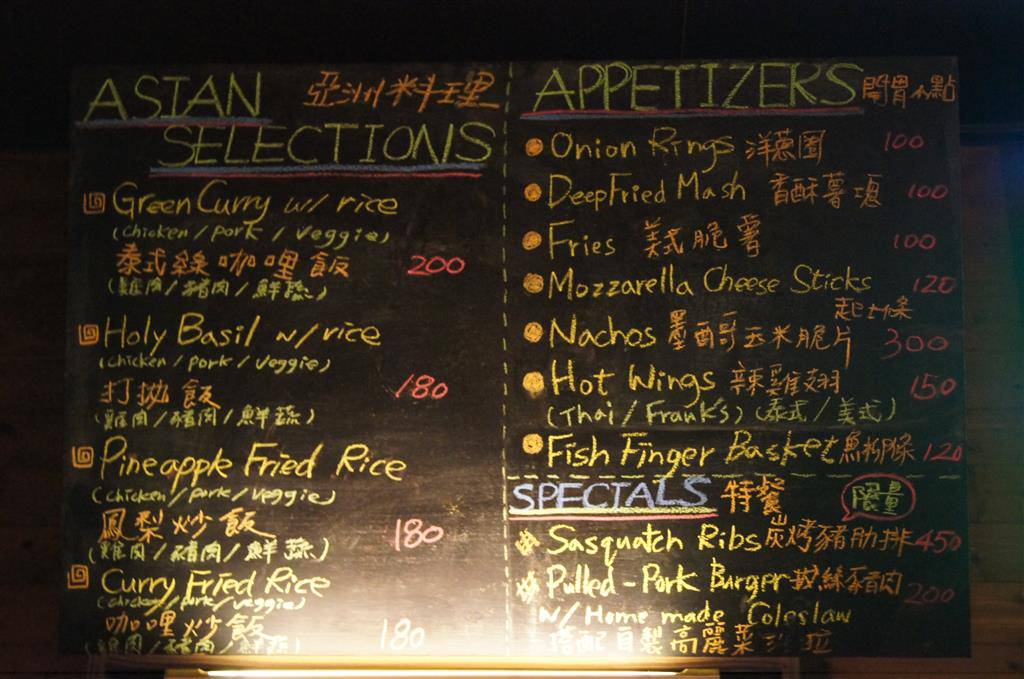 ASIAN 亞洲料理
SELECTIONS
Green Curry w/ rice
(chicken / pork / veggie)
泰式綠咖哩飯 200
(雞肉 / 豬肉 / 鮮蔬)
Holy Basil w/ rice
(chicken / pork / veggie)
打拋飯 180
(雞肉 / 豬肉 / 鮮蔬)
Pineapple Fried Rice
(chicken / pork / veggie)
鳳梨炒飯 180
(雞肉 / 豬肉 / 鮮蔬)
Curry Fried Rice
(chicken / pork / veggie)
咖哩炒飯 180
(雞肉 / 豬肉 / 鮮蔬)
APPETIZERS 開胃小點
Onion Rings 洋蔥圈 100
DeepFried Mash 香酥薯塊 100
Fries 美式脆薯 100
Mozzarella Cheese Sticks 120
起士條
Nachos 墨西哥玉米脆片 300
Hot Wings 辣雞翅 150
(Thai / Frank's) (泰式 / 美式)
Fish Finger Basket 魚柳條 120
SPECIALS 特餐 限量
Sasquatch Ribs 炭烤豬肋排 450
Pulled-Pork Burger 拔絲豬肉 200
w/ Home made Coleslaw
搭配自製高麗菜沙拉